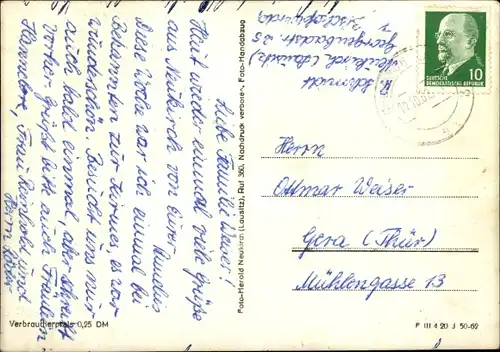 Liebe Familie Weiser!
Heut wieder einmal viele Grüße
aus Neukirch von Eurer
Diese Woche war ich einmal bei
bekannten zur Kirmes, es war
wunderschön. Besucht uns nur
auch bald einmal, aber
vorher grüßt bitte auch Fräulein
Hanneberg, Frau und
Herrn
H. Schmidt
Neukirch (Lausitz)
Georgenbadstr. 25
Foto-Herold Neukirch (Lausitz), Ruf 360, Nachdruck verboten, Foto-Handabzug
DEUTSCHE
DEMOKRATISCHE REPUBLIK
10
Herrn
Ottmar Weiser
Gera (Thür)
Mühlengasse 13
Verbraucherpreis 0,25 DM
P III 4 20 J 50-62